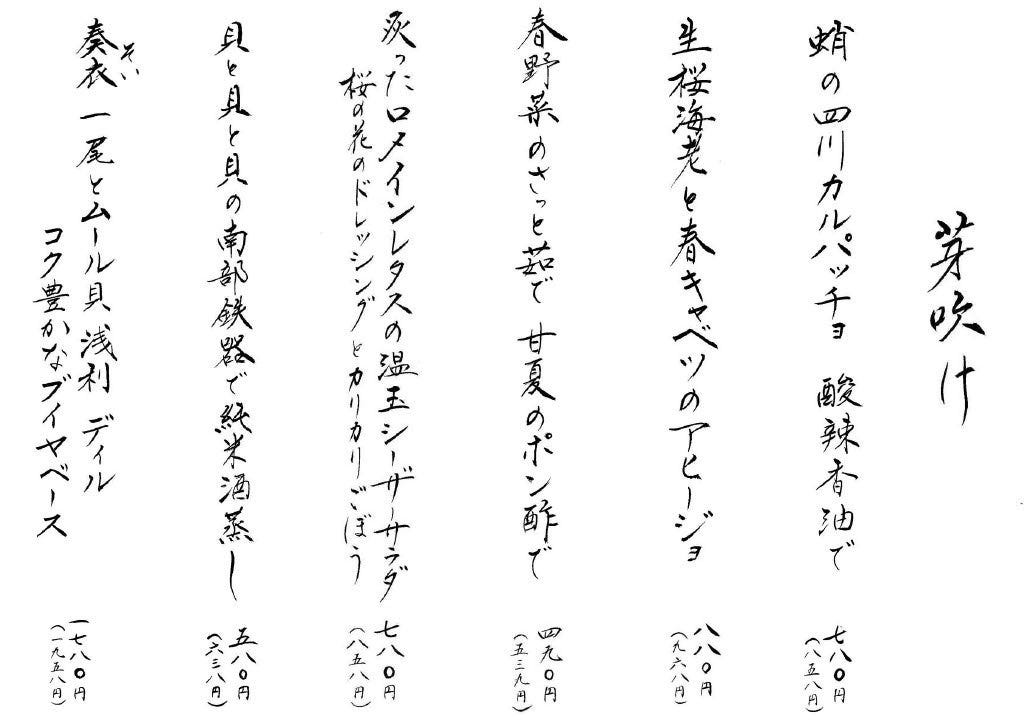 芽吹け
蛸の四川カルパッチョ 酸辣香油で
七八〇円
(八五八円)
生桜海老と春キャベツのアヒージョ
八八〇円
(九六八円)
春野菜のさっと茹で 甘夏のポン酢で
四九〇円
(五三九円)
炙ったロメインレタスの温玉シーザーサラダ
桜の花のドレッシングとカリカリごぼう
七八〇円
(八五八円)
貝と貝と貝の南部鉄器で純米酒蒸し
五八〇円
(六三八円)
そい
奏衣 一尾とムール貝 浅利 ディル
コク豊かなブイヤベース
一七八〇円
(一九五八円)